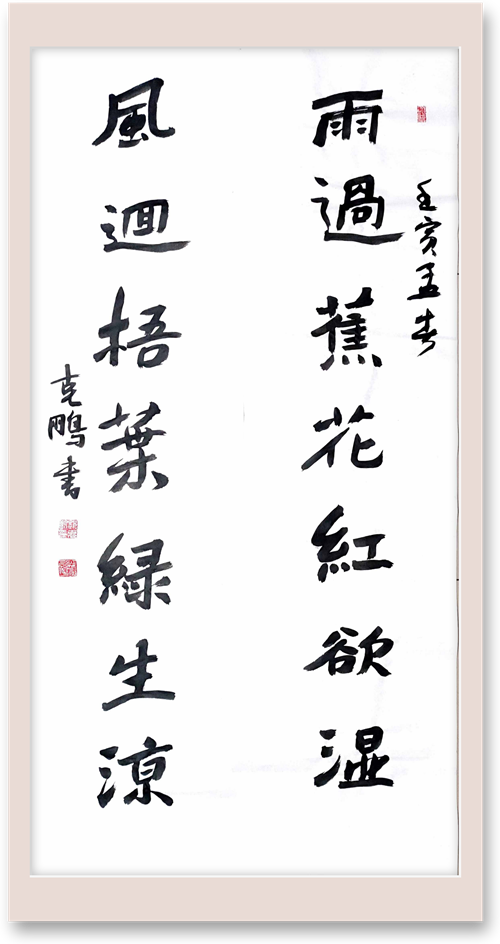 壬寅孟春
雨過蕉花紅欲湿
風迴梧葉緑生涼
克鵬書